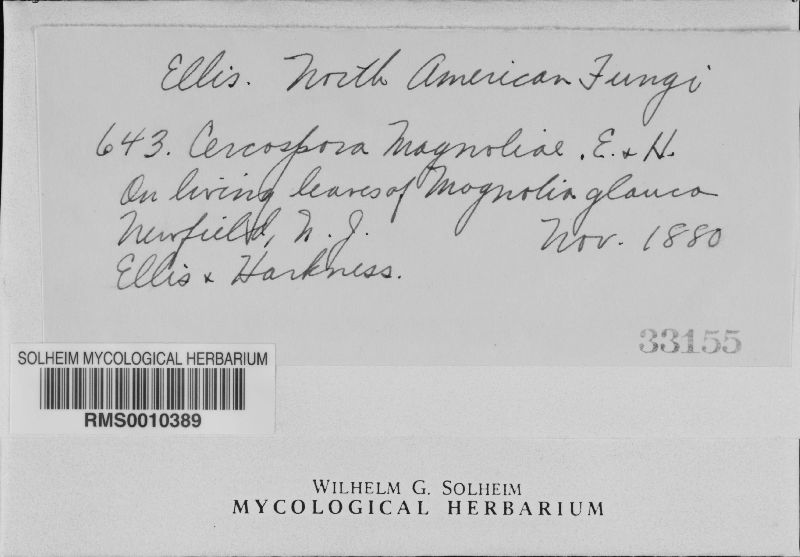 Ellis. North American Fungi
643. Cercospora Magnoliae. E. & H.
On living leaves of Magnolia glauca
Newfield, N. J. Nov. 1880
Ellis & Harkness.
33155
SOLHEIM MYCOLOGICAL HERBARIUM
RMS0010389
WILHELM G. SOLHEIM
MYCOLOGICAL HERBARIUM